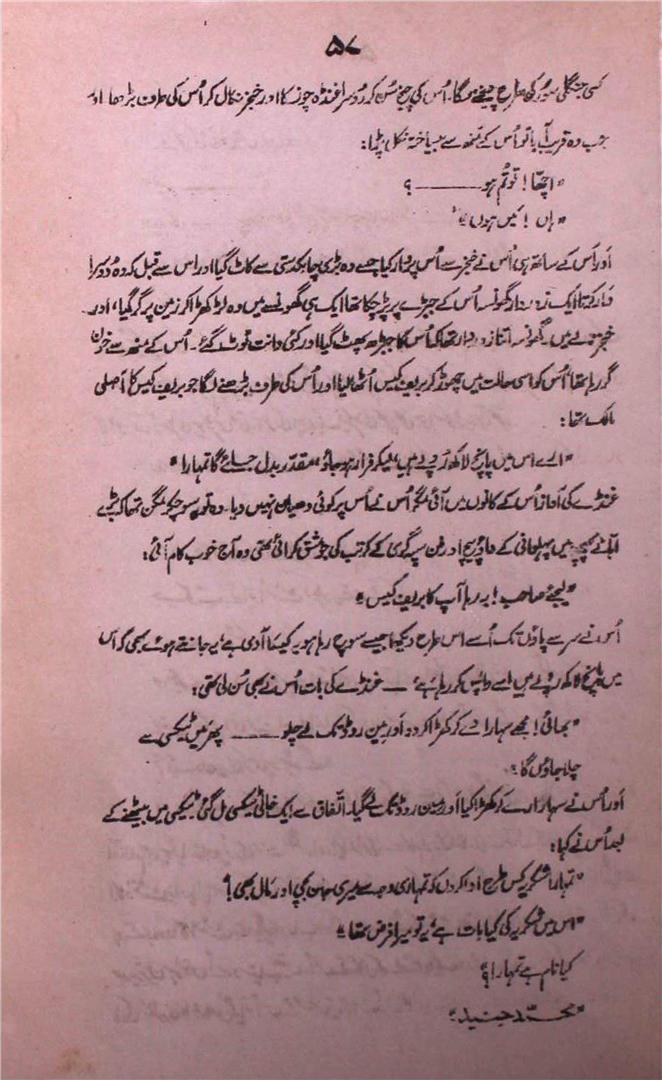 ۵۷
کسی جنگلی سور کی طرح چیخنے لگا۔ اُس کی چیخ سُن کر دُوسرا غنڈہ چونکا اور خنجر نکال کر اُس کی طرف بڑھا اور
جب وہ قریب آیا تو اُس کے مُنھ سے بیساختہ نکل پڑا:
"اچھّا! تو تُم ہو ——— ؟
"ہاں! مَیں ہوں"
اَور اُس کے ساتھ ہی اُس نے خنجر سے اُس پر وار کیا جسے وہ بڑی چابکدستی سے کاٹ گیا اور اس سے قبل کہ وہ دُوسرا
وار کرتا ایک زور دار گھونسہ اُس کے جبڑے پر پڑ چکا تھا ایک ہی گھونسے میں وہ لڑکھڑا کر زمین پر گر گیا، اور
خنجر میں۔ گھونسہ اتنا زور دار تھا کہ اُس کا جبڑہ پھٹ گیا اور کئی دانت ٹوٹ گئے۔ اُس کے منھ سے خون
گر رہا تھا اُس کو اسی حالت میں چھوڑ کر بریف کیس اُٹھا لیا اور اُس کی طرف بڑھنے لگا جو بریف کیس کا اَصلی
مالک تھا:
"ارے اس میں پانچ لاکھ رُوپے ہیں، لیکر فرار ہو جاؤ، مقدّر بدل جائے گا تمہارا"
غنڈے کی آواز اُس کے کانوں میں آئی مگر اُس نے اُس پر کوئی دھیان نہیں دیا۔ وہ تو یہ سوچ کر مگن تھا کہ بڑے
ابّا نے بچپن میں پہلوانی کے داؤ پیچ اور فن سپہ گری کے کرتب کی جو مشق کرائی تھی وہ آج خوب کام آئی:
"لیجئے صاحب! یہ رہا آپ کا بریف کیس"
اُس نے سر سے پاؤں تک اُسے اس طرح دیکھا جیسے سوچ رہا ہو یہ کیسا آدمی ہے، یہ جانتے ہوئے بھی کہ اُس
میں پانچ لاکھ رُوپے ہیں اسے واپس کر رہا ہے، — غنڈے کی بات اُس نے بھی سُن لی تھی:
"بھائی! مجھے سہارا دے کر کھڑا کر دو اَور مین روڈ تک لے چلو ——— پھر مَیں ٹیکسی سے
چلا جاؤں گا"
اَور اُس نے سہارا دے کر کھڑا کیا اَور مین روڈ تک لے گیا۔ اتّفاق سے ایک خالی ٹیکسی مل گئی، ٹیکسی میں بیٹھنے کے
بعد اُس نے کہا:
"تمہارا شکریہ کِس طرح ادا کروں کہ تمہاری وجہ سے میری جان بچی اور مال بھی؟
"اس میں شکریہ کی کیا بات ہے، یہ تو میرا فرض تھا"
کیا نام ہے تمہارا؟
"محمّد جنید"